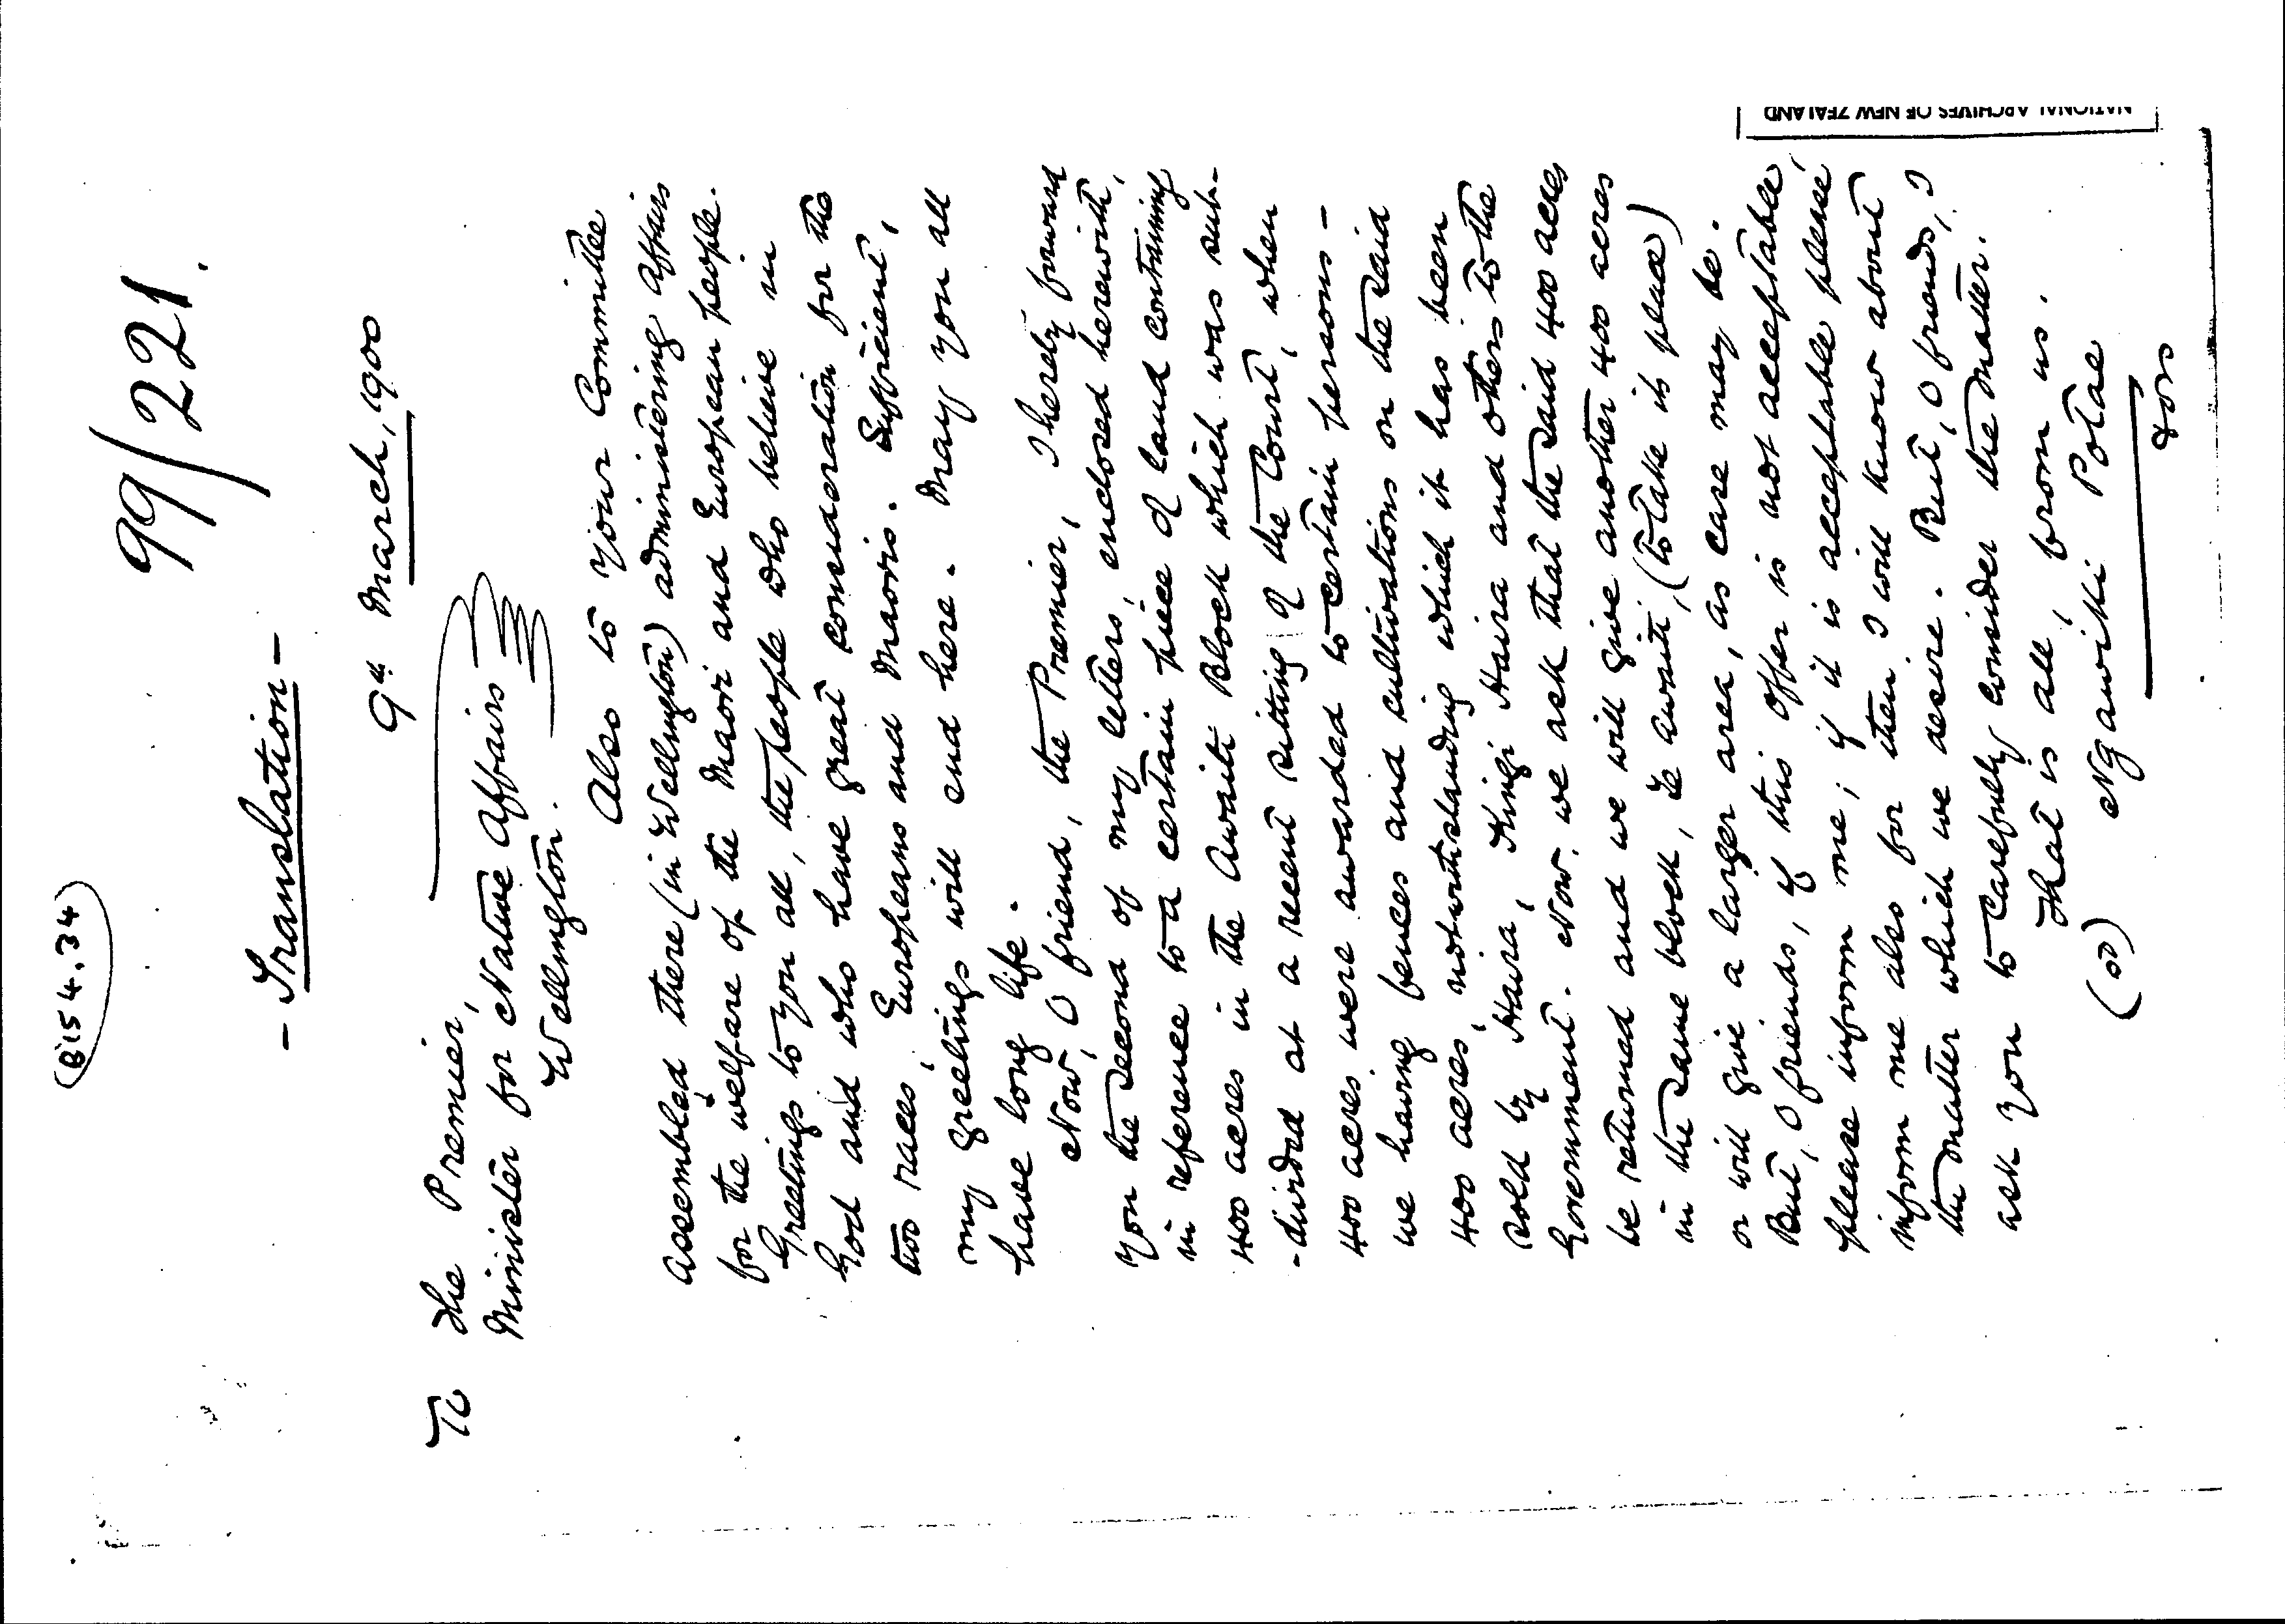 (B154.34)
99/221.
- Translation -
9th March, 1900
To The Premier,
Minister for Native Affairs
Wellington.
Also to your Committee
assembled there (in Wellington) administering affairs
for the welfare of the Maori and European people.
Greetings to you all, the people who believe in
God and who have great consideration for the
two races, Europeans and Maoris. Sufficient,
my greetings will end here. May you all
have long life.
Now, O friend, the Premier, I hereby forward
you the second of my letters, enclosed herewith,
in reference to a certain piece of land containing
400 acres in the Awaiti Block which was sub-
-divided at a recent sitting of the Court, when
400 acres were awarded to certain persons -
we having fences and cultivations on the said
400 acres, notwithstanding which it has been
sold by Haira, Kingi Haira and others to the
Government. Now, we ask that the said 400 acres
be returned and we will give another 400 acres
in the same block, Te Awaiti, (to take its place)
or will give a larger area, as case may be.
But, O friends, if this offer is not acceptable,
please inform me; if it is acceptable please
inform me also for then I will know about
the matter which we desire. But, O friends, I
ask you to carefully consider the matter.
That is all, from us.
(sd) Ngawiki Potae
& ors
NATIONAL ARCHIVES OF NEW ZEALAND